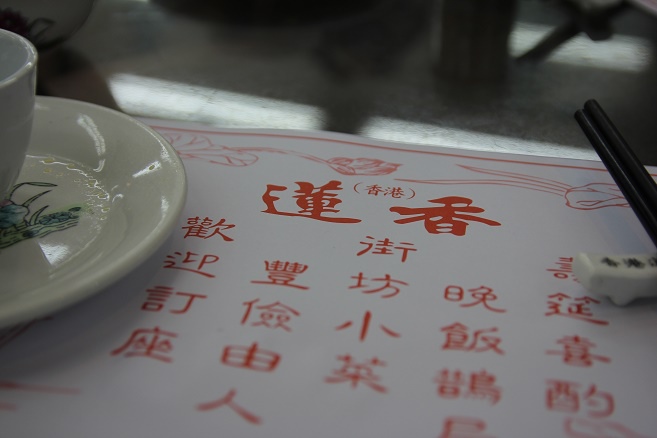 蓮(香港)香
筵喜酌
晚飯鵲局
街坊小菜
豐儉由人
歡迎訂座
香港